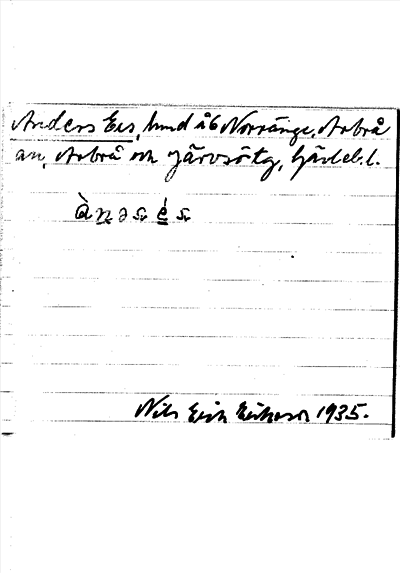 Anders Ers, hmd å 6 Norränge, Arbrå
an, Arbrå och Järvsö tg, Gävleb. l.
ànəsés
Nils Erik Eriksson 1935.